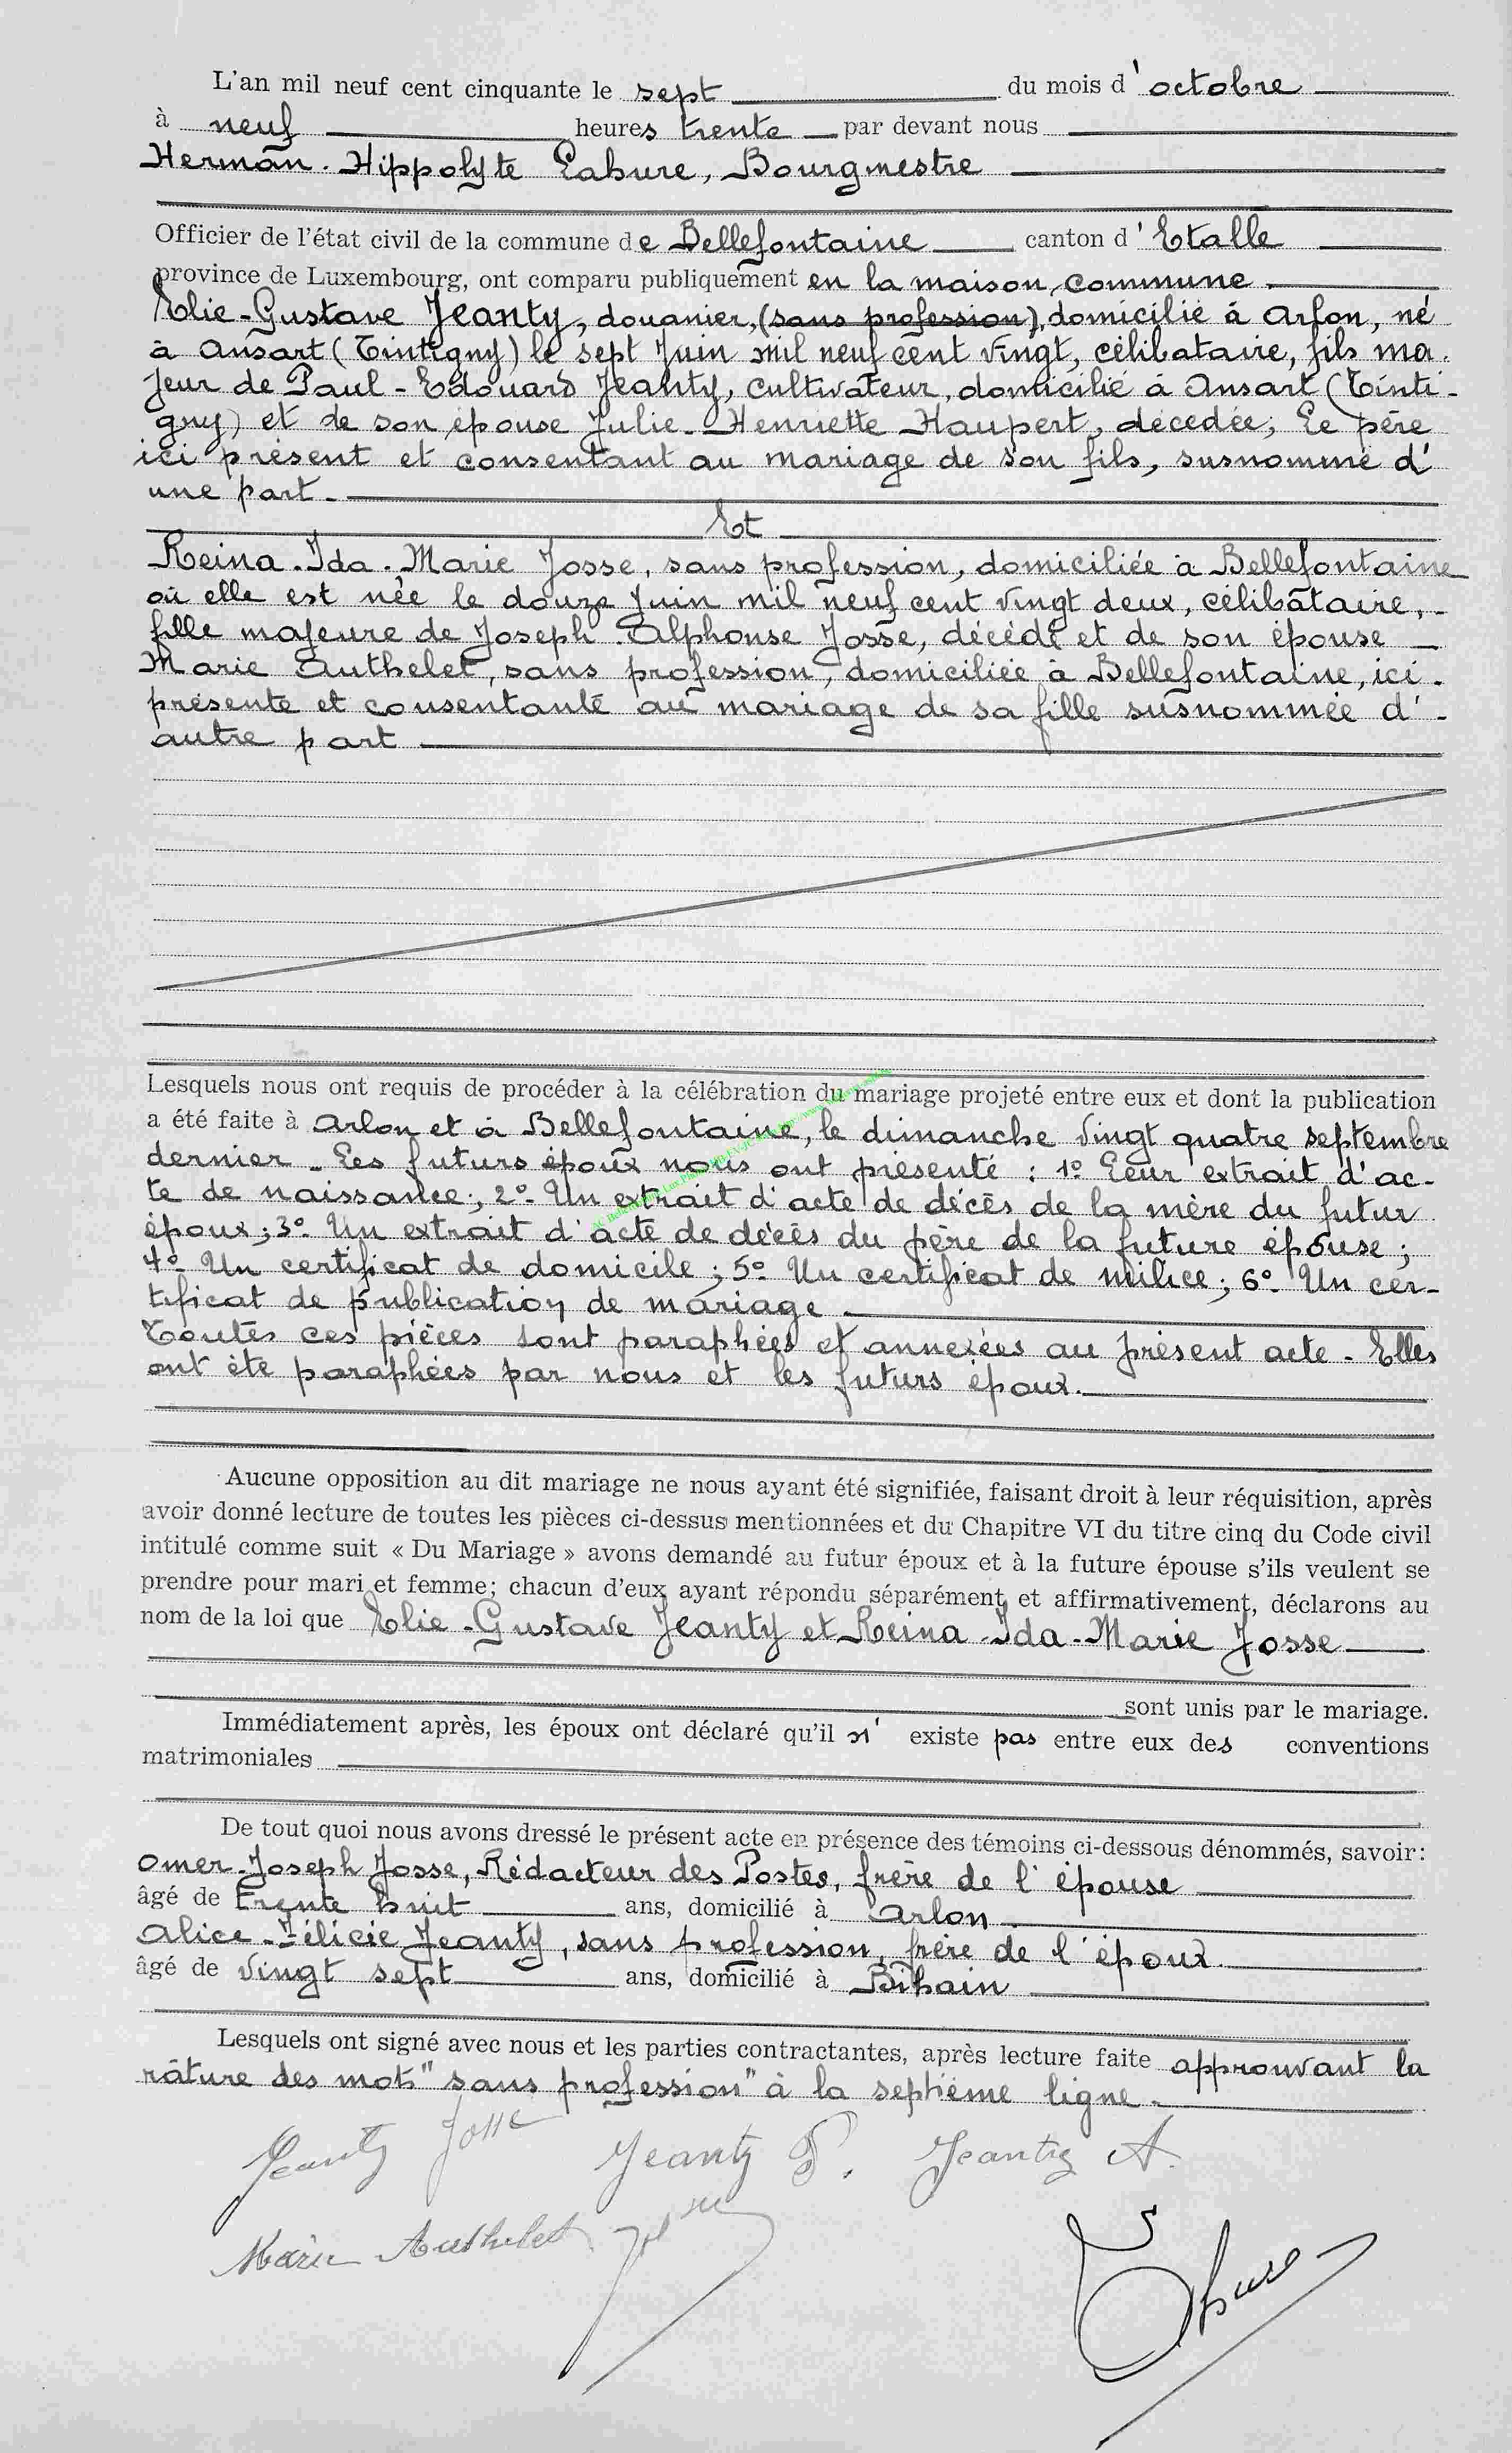 L'an mil neuf cent cinquante le sept du mois d'octobre
à neuf heures trente par devant nous
Herman-Hippolyte Lahure, Bourgmestre
Officier de l'état civil de la commune de Bellefontaine canton d'Etalle
province de Luxembourg, ont comparu publiquement en la maison commune.
Elie-Gustave Jeanty, douanier, (sans profession), domicilié à Arlon, né
à Ansart (Tintigny) le sept Juin mil neuf cent vingt, célibataire, fils ma-
jeur de Paul-Edouard Jeanty, cultivateur, domicilié à Ansart (Tinti-
gny) et de son épouse Julie-Henriette Haupert, décédée, Le père
ici présent et consentant au mariage de son fils, susnommé d'
une part.
Et
Reina-Ida-Marie Josse, sans profession, domiciliée à Bellefontaine
où elle est née le douze Juin mil neuf cent vingt deux, célibataire,
fille majeure de Joseph-Alphonse Josse, décédé et de son épouse
Marie Authelet, sans profession, domiciliée à Bellefontaine, ici
présente et consentante au mariage de sa fille susnommée d'
autre part
Lesquels nous ont requis de procéder à la célébration du mariage projeté entre eux et dont la publication
a été faite à Arlon et à Bellefontaine, le dimanche vingt quatre septembre
dernier - Les futurs époux nous ont présenté : 1° Leur extrait d'ac-
te de naissance; 2° Un extrait d'acte de décès de la mère du futur
époux; 3° Un extrait d'acte de décès du père de la future épouse;
4° Un certificat de domicile; 5° Un certificat de milice; 6° Un cer-
tificat de publication de mariage
Toutes ces pièces sont paraphées et annexées au présent acte - Elles
ont été paraphées par nous et les futurs époux.
Aucune opposition au dit mariage ne nous ayant été signifiée, faisant droit à leur réquisition, après
avoir donné lecture de toutes les pièces ci-dessus mentionnées et du Chapitre VI du titre cinq du Code civil
intitulé comme suit « Du Mariage » avons demandé au futur époux et à la future épouse s'ils veulent se
prendre pour mari et femme; chacun d'eux ayant répondu séparément et affirmativement, déclarons au
nom de la loi que Elie-Gustave Jeanty et Reina-Ida-Marie Josse
sont unis par le mariage.
Immédiatement après, les époux ont déclaré qu'il n'existe pas entre eux des conventions
matrimoniales
De tout quoi nous avons dressé le présent acte en présence des témoins ci-dessous dénommés, savoir:
Omer-Joseph Josse, Rédacteur des Postes, frère de l'épouse
âgé de trente huit ans, domicilié à Arlon
Alice-Félicie Jeanty, sans profession, frère de l'époux
âgé de vingt sept ans, domicilié à Bihain
Lesquels ont signé avec nous et les parties contractantes, après lecture faite approuvant la
râture des mots "sans profession" à la septième ligne.
Jeanty Josse Jeanty P. Jeanty A.
Marie Authelet
Lahure